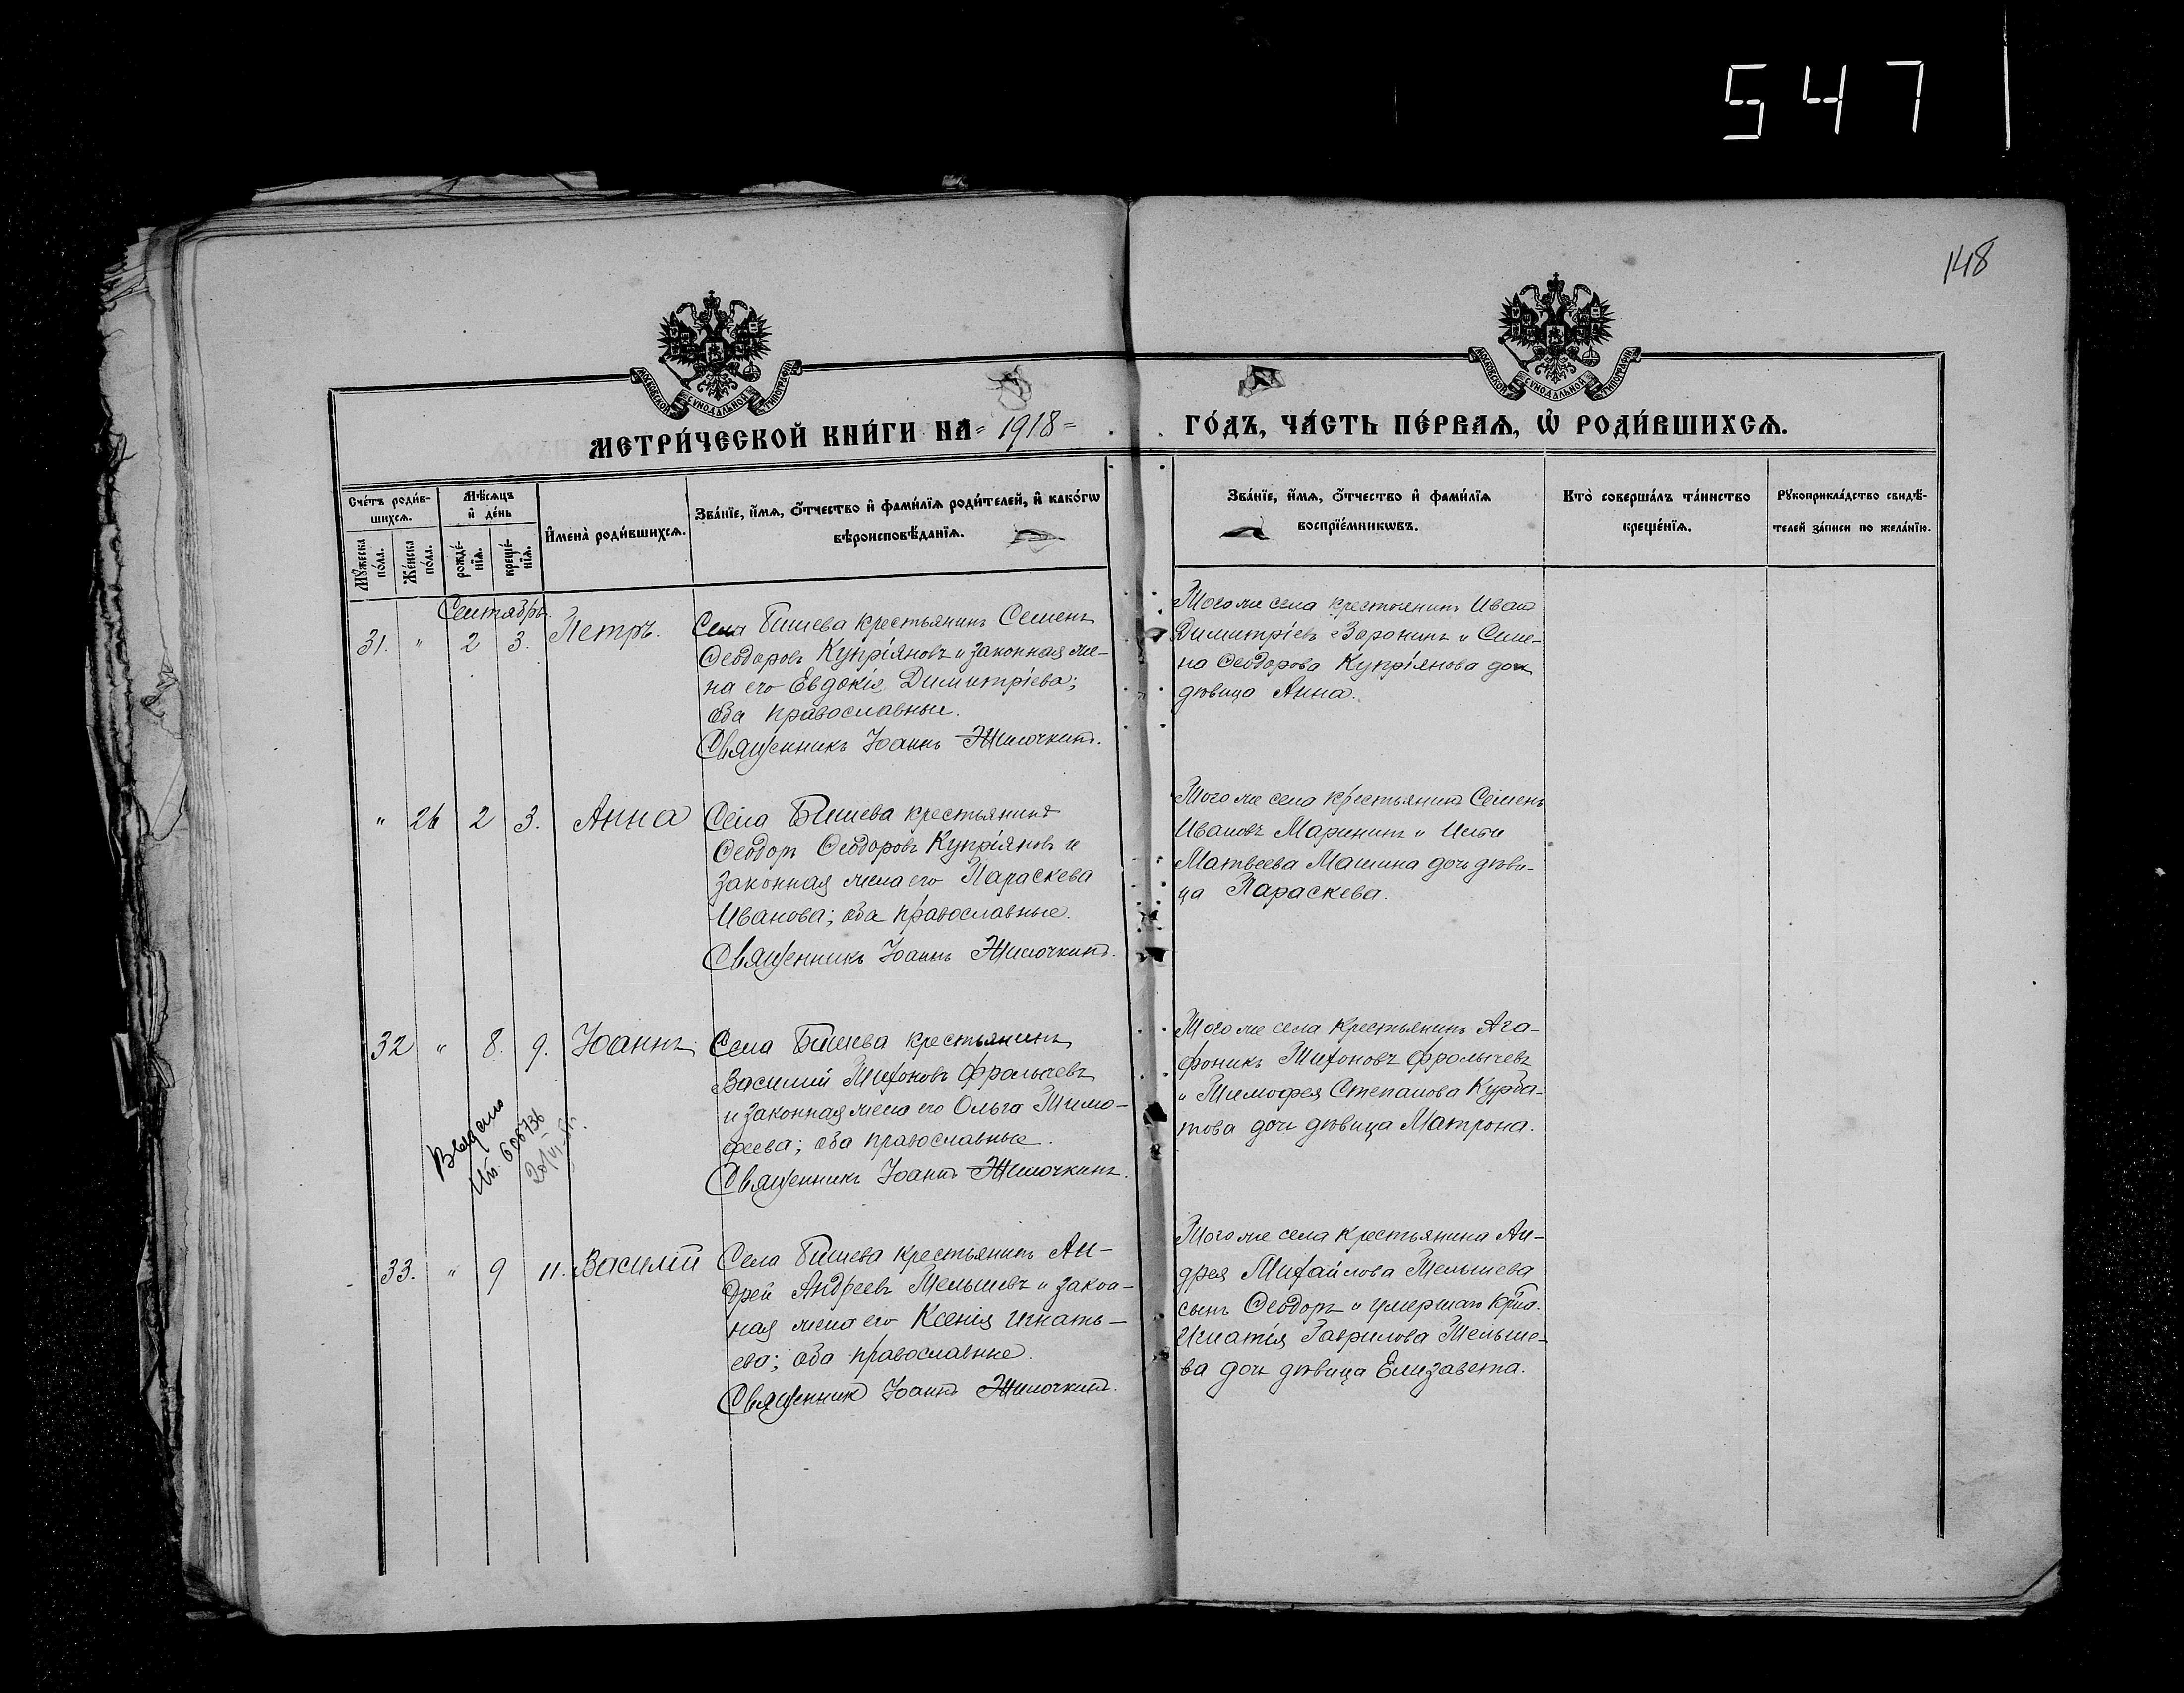 547
148
МОСКОВСКОЙ СѴНОДАЛЬНОЙ ТИПОГРАФІИ
МОСКОВСКОЙ СѴНОДАЛЬНОЙ ТИПОГРАФІИ
МЕТРИ́ЧЕСКОЙ КНИ́ГИ НА = 1918 =
ГО́ДЪ, ЧА́СТЬ ПЕ́РВАѦ, Ѡ҆ РОДИ́ВШИХСѦ.
Сче́тъ роди́в-
шихсѧ.
Мꙋ́жеска
по́ла.
Же́нска
по́ла.
Мѣ́сѧцъ
и҆ де́нь
рожде́-
нїѧ.
креще́-
нїѧ.
И҆мена̀ роди́вшихсѧ.
Зва́нїе, и҆́мѧ, ѻ҆́тчество и҆ фами́лїѧ роди́телей, и҆ како́гѡ
вѣроисповѣ́данїѧ.
Зва́нїе, и҆́мѧ, ѻ҆́тчество и҆ фами́лїѧ
воспрїе́мникѡвъ.
Кто̀ соверша́лъ та́инство
креще́нїѧ.
Рꙋкоприкла́дство свидѣ́-
телей за́писи по жела́нїю.
Сентябрь.
31. " 2 3. Петръ.
Села Бишева крестьянинъ Семенъ
Ѳеодоровъ Купріяновъ и законная же-
на его Евдокія Димитріева;
оба православные.
Священникъ Іоаннъ Жилочкинъ.
Того же села крестьянинъ Иван
Димитріевъ Воронинъ и Семе-
на Ѳеодорова Купріянова дочь
дѣвица Анна.
" 26 2 3. Анна
Села Бишева крестьянинъ
Ѳеодоръ Ѳеодоровъ Купріяновъ и
законная жена его Параскева
Иванова; оба православные.
Священникъ Іоаннъ Жилочкинъ.
Того же села крестьянинъ Семенъ
Ивановъ Маринин и
Матвеева Машина дочь дѣви-
ца Параскева.
32 " 8. 9. Іоаннъ
Села Бишева крестьянинъ
Василий Тихоновъ Фролычевъ
и законная жена его Ольга Тимо-
феева; оба православные.
Священникъ Іоаннъ Жилочкинъ.
Того же села крестьянинъ Ага-
фоникъ Тихоновъ Фролычевъ
и Тимофея Степанова Курба-
това дочь дѣвица Матрона.
Выдано
606736
33. " 9 11. Василій
Села Бишева крестьянинъ Ан-
дрей Андреевъ Телышевъ и закон-
ная жена его Ксенія Игнать-
ева; оба православные.
Священник Іоаннъ Жилочкинъ.
Того же села крестьянина Ан-
дрея Михайлова Телышева
сынъ Ѳеодоръ и умершаго кр-на
Игнатія Гаврилова Телыше-
ва дочь дѣвица Елизавета.